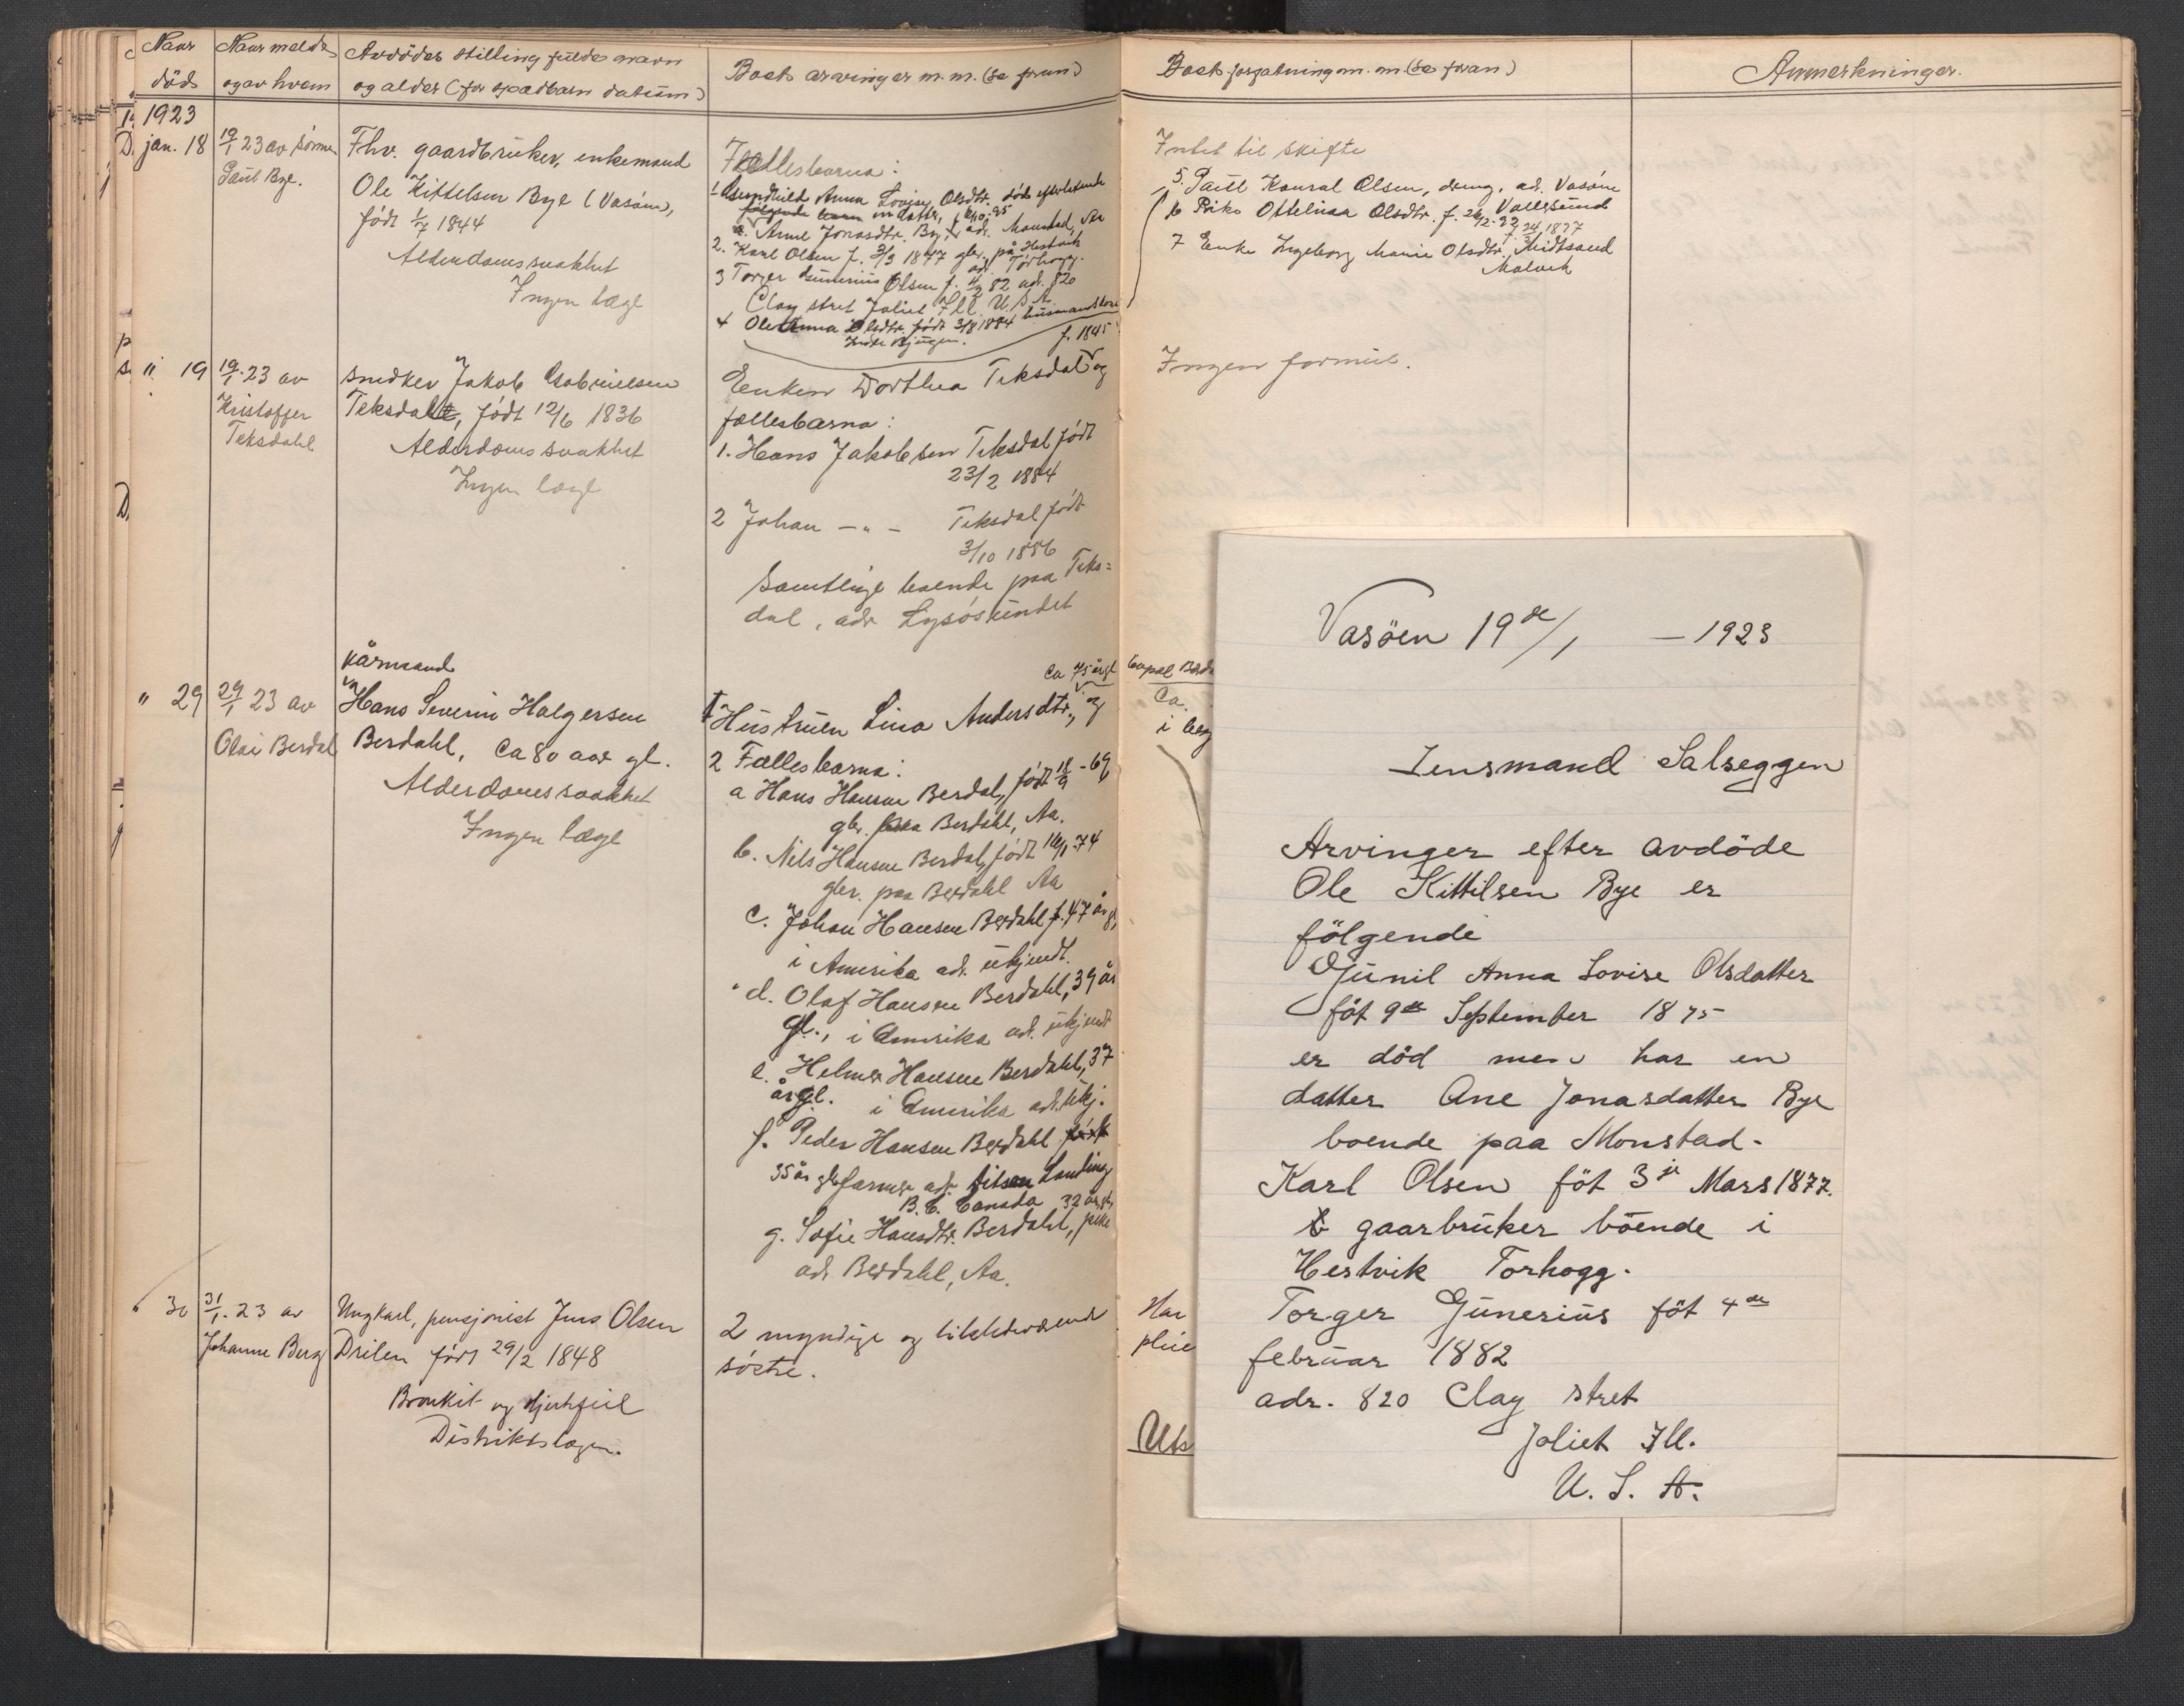 Naar
död
Naar meldt
og av hvem
Avdödes stilling fulde navn
og alder (for spædbarn datum)
Boets arvinger m. m. (se foran)
Boets forfatning m. m. (se foran)
Anmerkninger.
1923
jan. 18
19/1 23 av sønnen
Paul Bye.
Fhv. gaardbruker, enkemand
Ole Kittelsen Bye (Vasöen),
født 1/7 1844
Alderdomssvakhet
Ingen læge
Fællesbarna:
1 Gundhild Anna Lovise Olsdtr. död efterlatende
følgende barn en datter,
a. Anne Jonasdtr. Bye, adr. Monstad, Aa
2. Karl Olsen f. 3/3 1877 gbr. på Hestvik
adr. Torhogg.
3 Torger Gunerius Olsen f. 4/2 82 adr. 820
Clay stret Joliet Ill. U.S.A.
4 Oleanna Olsdtr. født 3/8 1884 husmandskone
Indre Bjugn.
Intet til skifte
5. Paul Konrad Olsen, dreng, ad. Vasöen
Vallersund
6 Pike Ottelina Olsdtr. f. 26/2
7 Enke Ingeborg Marie Olsdtr. Midtsand
Malvik
" 19
19/1 23 av
Kristoffer
Teksdahl
Snedker Jakob Gabrielsen
Teksdal, født 12/6 1836
Alderdomssvakhet
Ingen læge
f. 1845
Enken Dorthea Teksdal og
fællesbarna:
1. Hans Jakobsen Teksdal født
23/2 1884
2 Johan — " — Teksdal født
3/10 1886
Samtlige boende paa Teks=
dal, adr Lysösundet
Ingen formue.
" 29
29/1 23 av
Olai Berdal
kårmand
Hans Severin Halgersen
Berdahl, Ca 80 aar gl.
Alderdomssvakhet
Ingen læge
ca 75 år gl
Hustruen Lina Andersdtr., og
2 Fællesbarna:
a Hans Hansen Berdal, født 18/9 - 69
gbr. paa Berdahl, Aa.
b. Nils Hansen Berdal, født 16/1 - 74
gbr. paa Berdahl Aa
c. Johan Hansen Berdahl f. 47 år gl,
i Amerika adr. ukjendt.
d. Olaf Hansen Berdahl, 39 år
gl., i Amerika ad. ukjendt
e. Helmer Hansen Berdahl, 37
år gl. i Amerika adr. ukj.
f. Peder Hansen Berdahl
35 år gl. farmer adr. Landing
B. C. Canada
32 år gl,
g. Sofie Hansdtr. Berdahl, pike
adr Berdahl, Aa.
Ca.
i berg
" 30
31/1. 23 av
Johanne Berg
Ungkarl, pensjonist Jens Olsen
Drilen født 29/2 1848
Bronkit og hjertefeil
Distriktslægen.
2 myndige og tilstedeværende
søstre.
Har
pleie
Uts
Vasöen 19de/1 — 1923
Lensmand Salseggen
Arvinger efter avdöde
Ole Kittilsen Bye er
fölgende
Gunil Anna Lovise Olsdatter
föt 9de September 1875
er död men har en
datter Ane Jonasdatter Bye
boende paa Monstad.
Karl Olsen föt 3je Mars 1877.
gaarbruker böende i
Hestvik Torhogg.
Torger Gunerius föt 4de
februar 1882
adr. 820 Clay stret
Joliet Ill.
U. S. A.